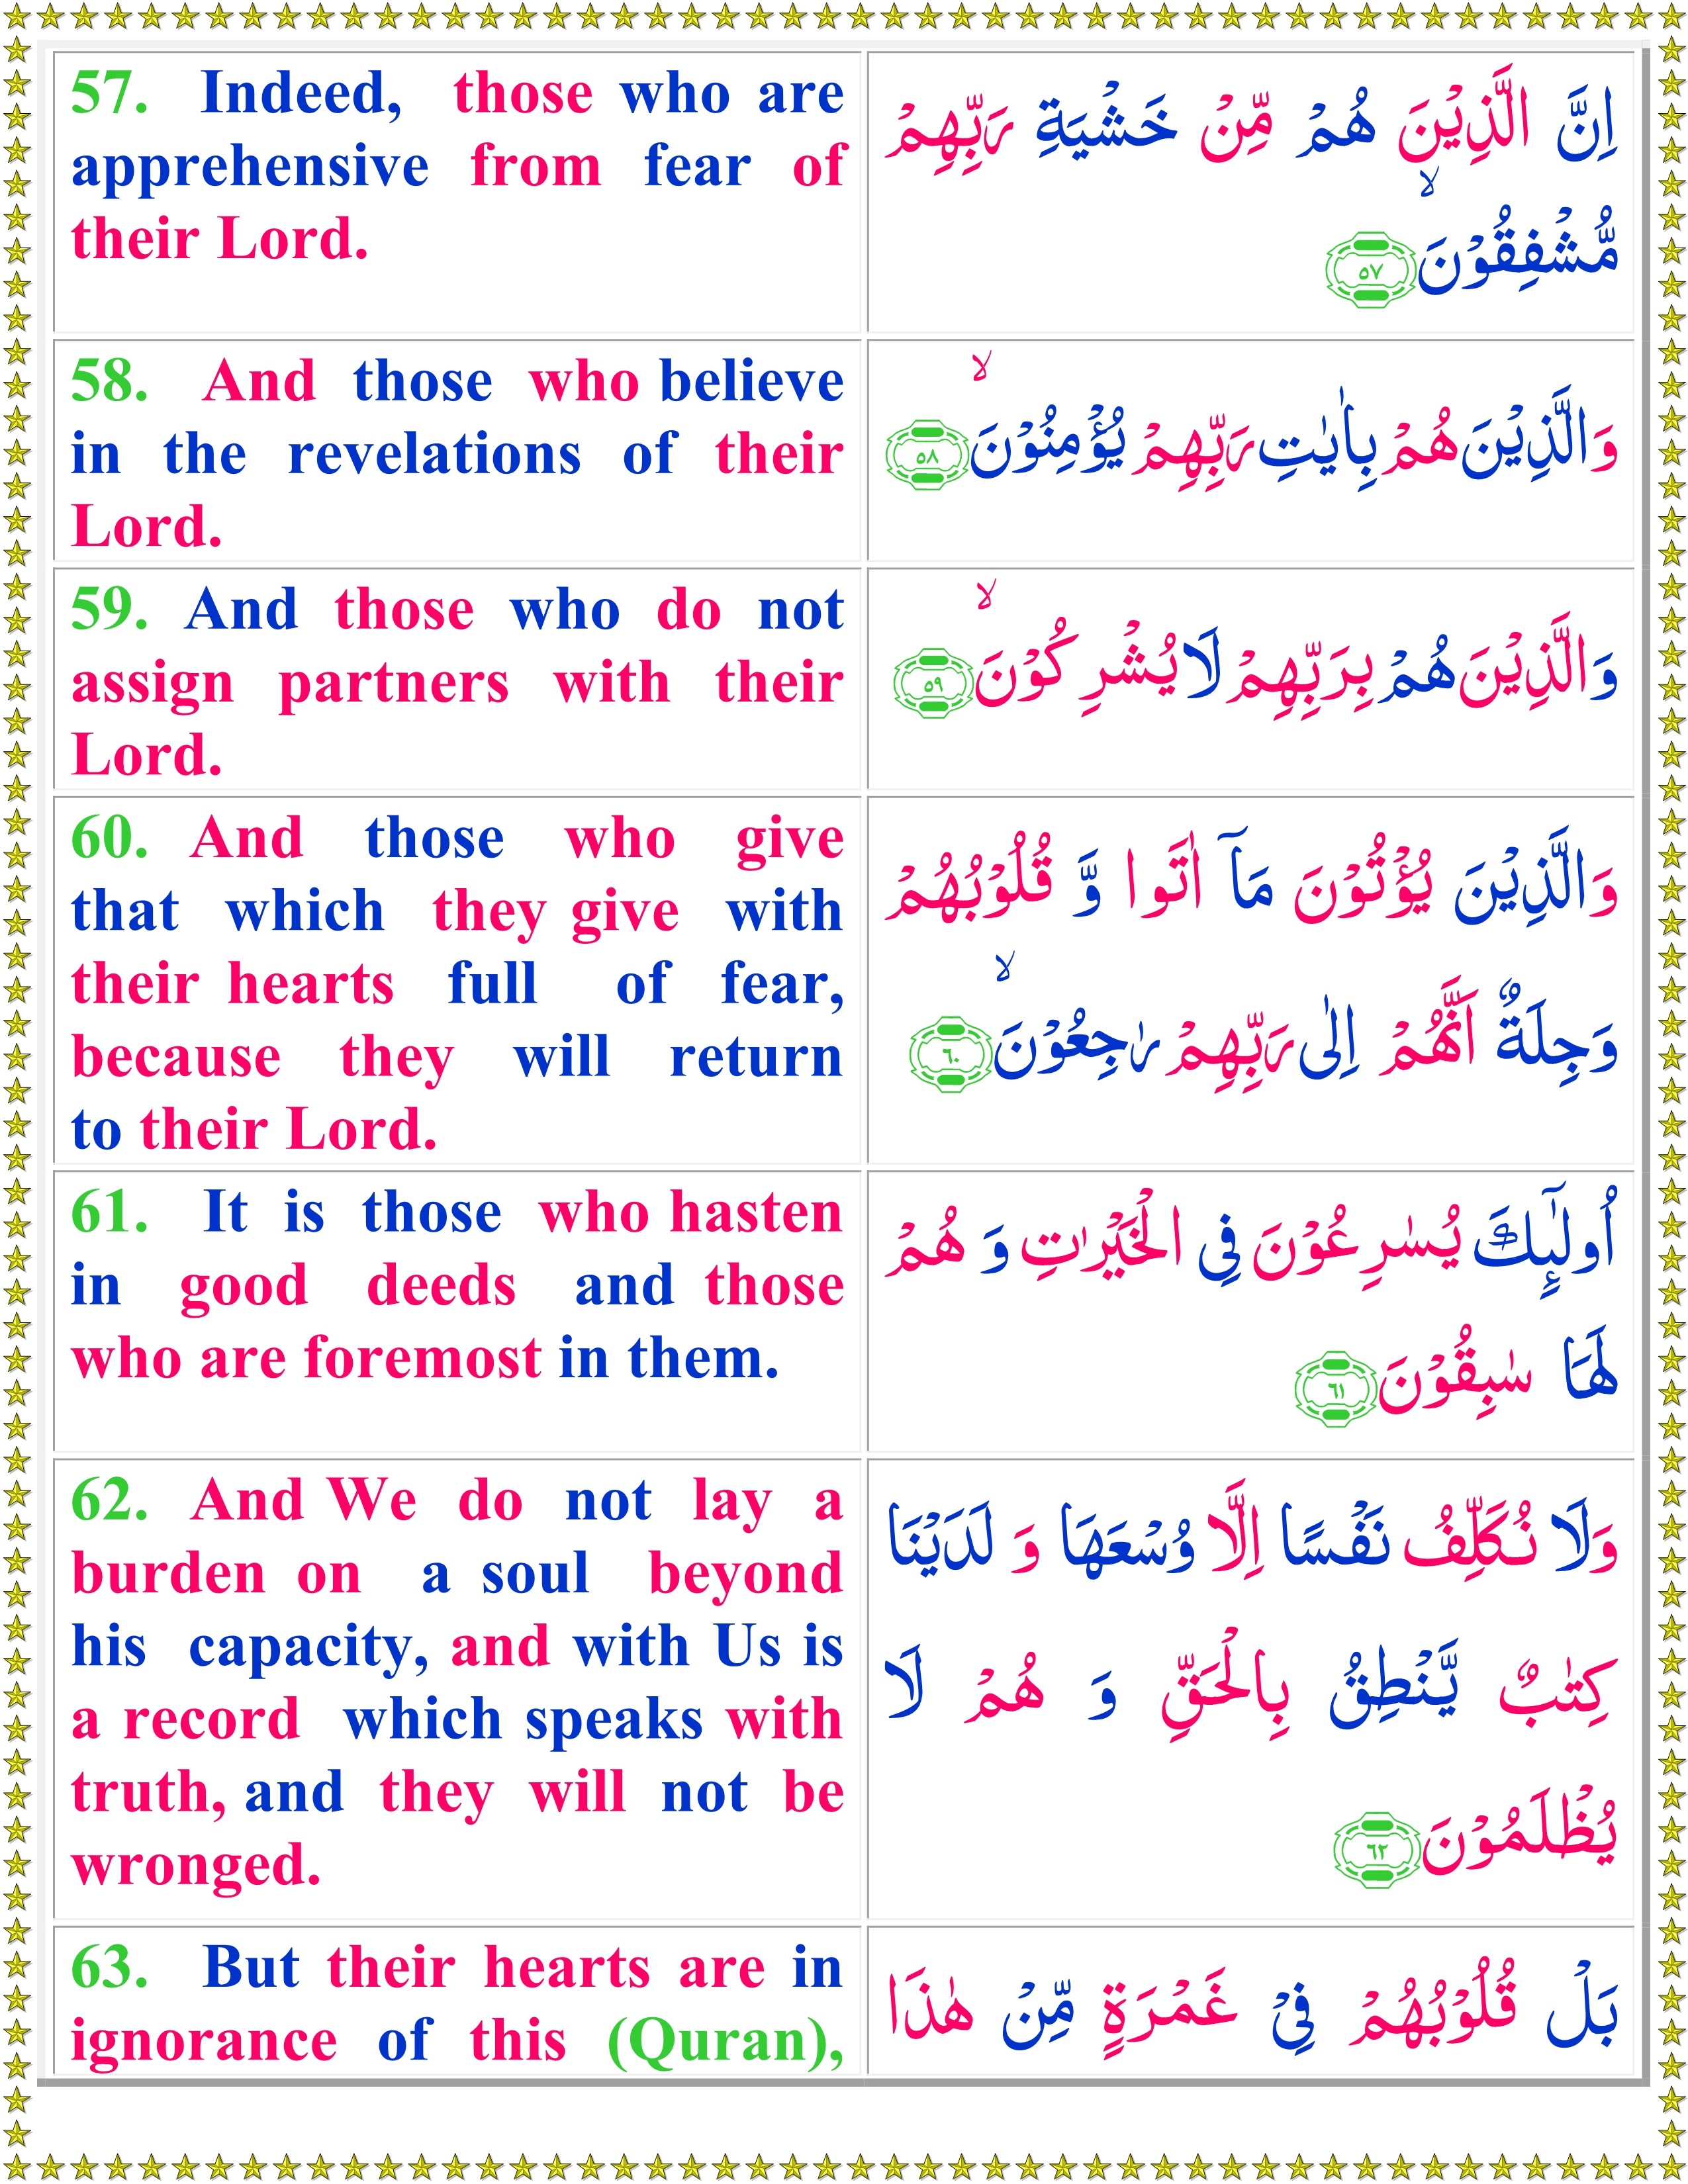 57. Indeed, those who are
apprehensive from fear of
their Lord.
اِنَّ الَّذِيْنَ هُمْ مِّنْ خَشْيَةِ رَبِّهِمْ
مُّشْفِقُوْنَ ۙ‏ ٥٧
58. And those who believe
in the revelations of their
Lord.
وَالَّذِيْنَ هُمْ بِاٰيٰتِ رَبِّهِمْ يُؤْمِنُوْنَ ۙ‏ ٥٨
59. And those who do not
assign partners with their
Lord.
وَالَّذِيْنَ هُمْ بِرَبِّهِمْ لَا يُشْرِكُوْنَ ۙ‏ ٥٩
60. And those who give
that which they give with
their hearts full of fear,
because they will return
to their Lord.
وَالَّذِيْنَ يُؤْتُوْنَ مَاۤ اٰتَوا وَّ قُلُوْبُهُمْ
وَجِلَةٌ اَنَّهُمْ اِلٰى رَبِّهِمْ رٰجِعُوْنَ ۙ‏ ٦٠
61. It is those who hasten
in good deeds and those
who are foremost in them.
اُولٰٓٮِٕكَ يُسٰرِعُوْنَ فِى الْخَيْرٰتِ وَ هُمْ
لَهَا سٰبِقُوْنَ ٦١
62. And We do not lay a
burden on a soul beyond
his capacity, and with Us is
a record which speaks with
truth, and they will not be
wronged.
وَلَا نُكَلِّفُ نَفْسًا اِلَّا وُسْعَهَا وَ لَدَيْنَا
كِتٰبٌ يَّنْطِقُ بِالْحَقِّ وَ هُمْ لَا
يُظْلَمُوْنَ ٦٢
63. But their hearts are in
ignorance of this (Quran),
بَلْ قُلُوْبُهُمْ فِىْ غَمْرَةٍ مِّنْ هٰذَا